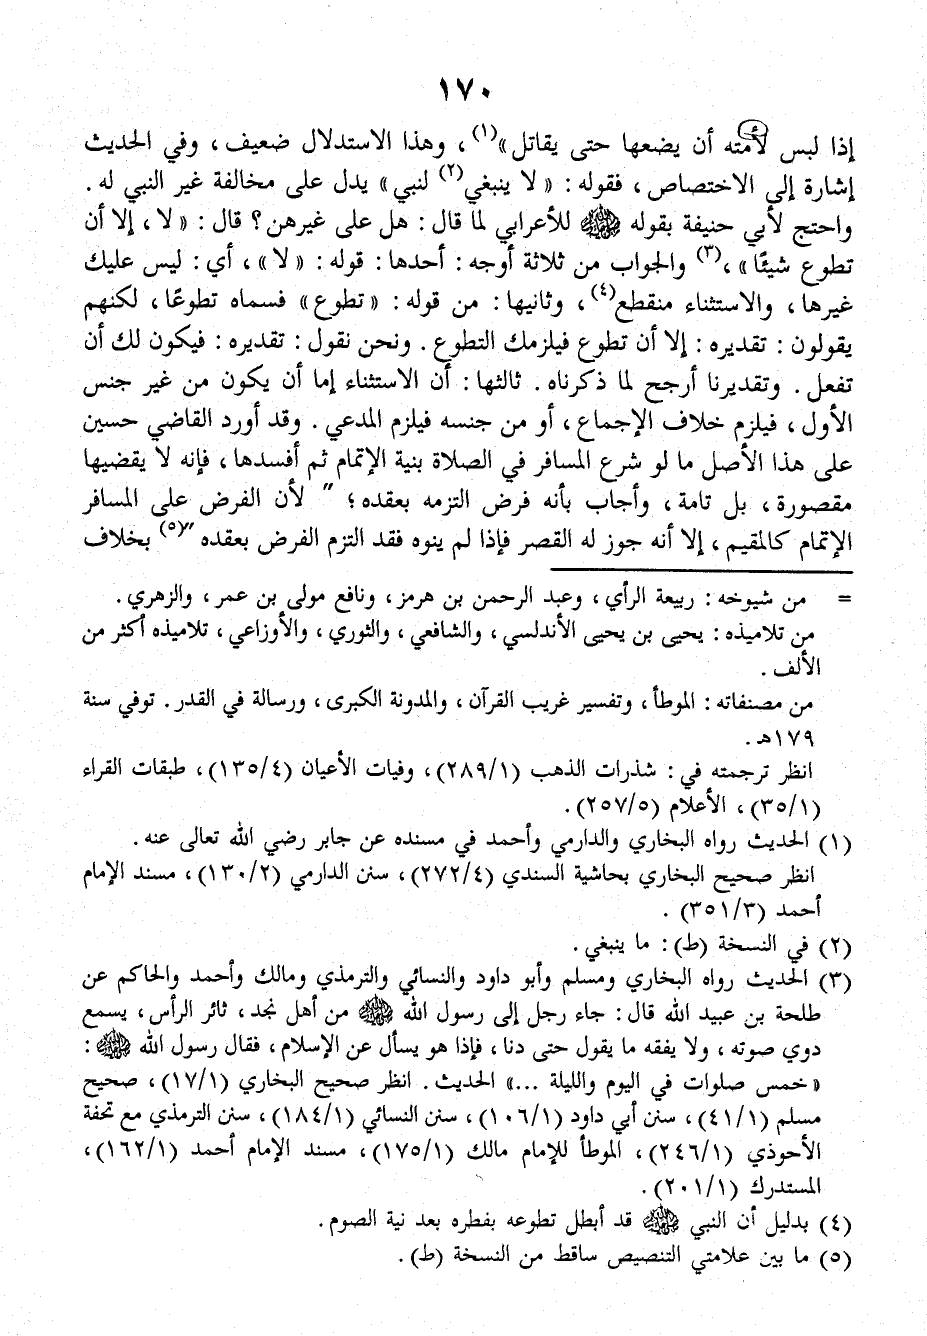 ١٧٠
إذا لبس لأمته أن يضعها حتى يقاتل»(١)، وهذا الاستدلال ضعيف، وفي الحديث
إشارة إلى الاختصاص، فقوله: «لا ينبغي(٢) لنبي» يدل على مخالفة غير النبي له.
واحتج لأبي حنيفة بقوله ﷺ للأعرابي لما قال: هل على غيرهن؟ قال: «لا، إلا أن
تطوع شيئًا»،(٣) والجواب من ثلاثة أوجه: أحدها: قوله: «لا»، أي: ليس عليك
غيرها، والاستثناء منقطع(٤)، وثانيها: من قوله: «تطوع» فسماه تطوعًا، لكنهم
يقولون: تقديره: إلا أن تطوع فيلزمك التطوع. ونحن نقول: تقديره: فيكون لك أن
تفعل. وتقديرنا أرجح لما ذكرناه. ثالثها: أن الاستثناء إما أن يكون من غير جنس
الأول، فيلزم خلاف الإجماع، أو من جنسه فيلزم المدعي. وقد أورد القاضي حسين
على هذا الأصل ما لو شرع المسافر في الصلاة بنية الإتمام ثم أفسدها، فإنه لا يقضيها
مقصورة، بل تامة، وأجاب بأنه فرض التزمه بعقده؛ " لأن الفرض على المسافر
الإتمام كالمقيم، إلا أنه جوز له القصر فإذا لم ينوه فقد التزم الفرض بعقده "(٥) بخلاف
= من شيوخه: ربيعة الرأي، وعبد الرحمن بن هرمز، ونافع مولى بن عمر، والزهري.
من تلاميذه: يحيى بن يحيى الأندلسي، والشافعي، والثوري، والأوزاعي، تلاميذه أكثر من
الألف.
من مصنفاته: الموطأ، وتفسير غريب القرآن، والمدونة الكبرى، ورسالة في القدر. توفي سنة
١٧٩هـ.
انظر ترجمته في: شذرات الذهب (٢٨٩/١)، وفيات الأعيان (١٣٥/٤)، طبقات القراء
(٣٥/١)، الأعلام (٢٥٧/٥).
(١) الحديث رواه البخاري والدارمي وأحمد في مسنده عن جابر رضي الله تعالى عنه.
انظر صحيح البخاري بحاشية السندي (٢٧٢/٤)، سنن الدارمي (١٣٠/٢)، مسند الإمام
أحمد (٣٥١/٣).
(٢) في النسخة (ط): ما ينبغي.
(٣) الحديث رواه البخاري ومسلم وأبو داود والنسائي والترمذي ومالك وأحمد والحاكم عن
طلحة بن عبيد الله قال: جاء رجل إلى رسول الله ﷺ من أهل نجد، ثائر الرأس، يسمع
دوي صوته، ولا يفقه ما يقول حتى دنا، فإذا هو يسأل عن الإسلام، فقال رسول الله ﷺ:
«خمس صلوات في اليوم والليلة ...» الحديث. انظر صحيح البخاري (١٧/١)، صحيح
مسلم (٤١/١)، سنن أبي داود (١٠٦/١)، سنن النسائي (١٨٤/١)، سنن الترمذي مع تحفة
الأحوذي (٢٤٦/١)، الموطأ للإمام مالك (١٧٥/١)، مسند الإمام أحمد (١٦٢/١)،
المستدرك (٢٠١/١).
(٤) بدليل أن النبي ﷺ قد أبطل تطوعه بفطره بعد نية الصوم.
(٥) ما بين علامتي التنصيص ساقط من النسخة (ط).